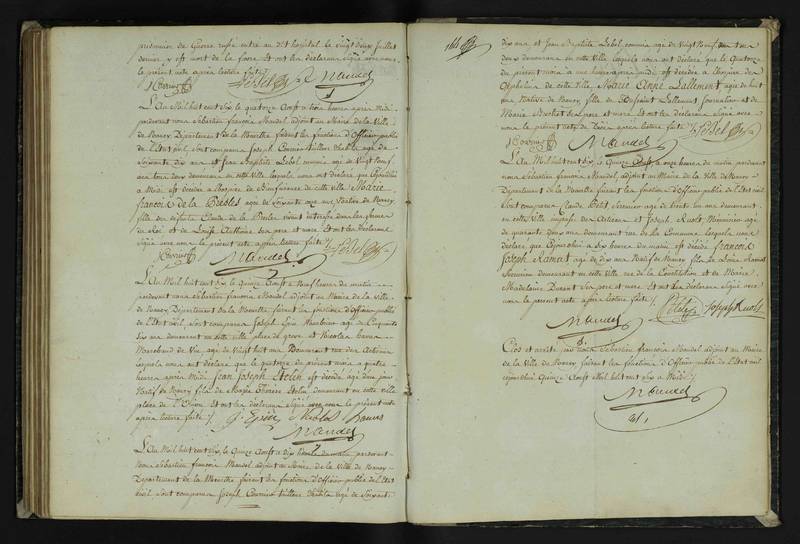 prisonnier de Guerre russe entré au dit hôpital le vingt deux Juillet
dernier y est mort de la fievre Et ont les déclarans signé avec nous
le présent acte après lecture faite
Lebel Mandel
L'An Mil huit cent dix le quatorze Aoust a trois heures après Midi
pardevant nous Sébastien françois Mandel adjoint au Maire de la Ville
de Nancy, Département de la Meurthe faisant les fonctions d'Officier public
de l'Etat civil, sont comparus Joseph tailleur d'habits agé de
Soixante dix ans et Jean Baptiste Lebel commis, agé de Vingt Neuf
ans tous deux demeurans en cette ville lesquels nous ont déclaré que
à Midi est décédée a l'hospice de Bienfaisance de cette ville Marie
françoise de la agée de soixante onze ans Native de Nancy,
fille des défunts Claude de la vivant
du Roi et de Louise ses père et mère Et ont les déclarans
signé avec nous le présent acte après lecture faite
Lebel
Mandel
L'An Mil huit cent dix le Quinze Aoust a Neuf heures du matin
pardevant nous Sébastien françois Mandel adjoint au Maire de la Ville
de Nancy, Département de la Meurthe faisant les fonctions d'Officier public
de l'Etat civil, sont comparus Joseph agé de Cinquante
six ans demeurant en cette ville place de greve et Nicolas
Marchand de Vin agé de Vingt huit ans Demeurant rue des Artisans
lesquels nous ont déclaré que le quatorze du présent mois a quatre
heures après midi Jean Joseph Etolin est décédé agé d'un jour
Natif de Nancy fils de Marie Thérèse Etolin demeurant en cette ville
place de l' Et ont les déclarans signé avec nous le présent acte
après lecture faite
Mandel
L'An Mil huit cent dix le Quinze Aoust a dix heures du matin pardevant
Nous Sébastien françois Mandel adjoint au Maire de la Ville de Nancy
Département de la Meurthe faisant les fonctions d'Officier public de l'Etat
civil sont comparus Joseph tailleur d'habits agé de Soixante
dix ans et Jean Baptiste Lebel commis agé de Vingt Neuf ans tous
deux demeurans en cette ville lesquels nous ont déclaré que le Quatorze
du présent mois a heures après midi est décédée a l'hospice des
Orphelins de cette ville, Marie Anne Lallement, agée de huit
ans Native de Nancy, fille de Lallement, Journalier et de
Marie ses père et mère Et ont les déclarans signé avec
nous le présent acte de décès après lecture faite Lebel
Mandel
L'An Mil huit cent dix le Quinze Aoust a onze heures du matin pardevant
nous Sébastien françois Mandel adjoint au Maire de la Ville de Nancy
Département de la Meurthe faisant les fonctions d'Officier public de l'Etat civil
Sont comparus Claude Petit Serrurier agé de trente six ans demeurant
en cette ville impasse des Artisans et Joseph Ruolt, Menuisier agé
de quarante deux ans demeurant rue de la Commune lesquels nous ont
déclaré que Cejourd'hui a dix heures du matin est décédé françois
Joseph Ramot agé de dix ans Natif de Nancy fils de Ramot
Serrurier demeurant en cette ville rue de la Constitution et de Marie
Madelaine Durant ses père et mère. Et ont les déclarans signé avec
nous le présent acte après lecture faite Petit Joseph Ruolt
Mandel
Clos et arrêté par nous Sébastien françois Mandel adjoint au Maire
de la Ville de Nancy faisant les fonctions d'Officier public de l'Etat civil
cejourd'hui Quinze Aoust Mil huit cent dix à Midi
Mandel